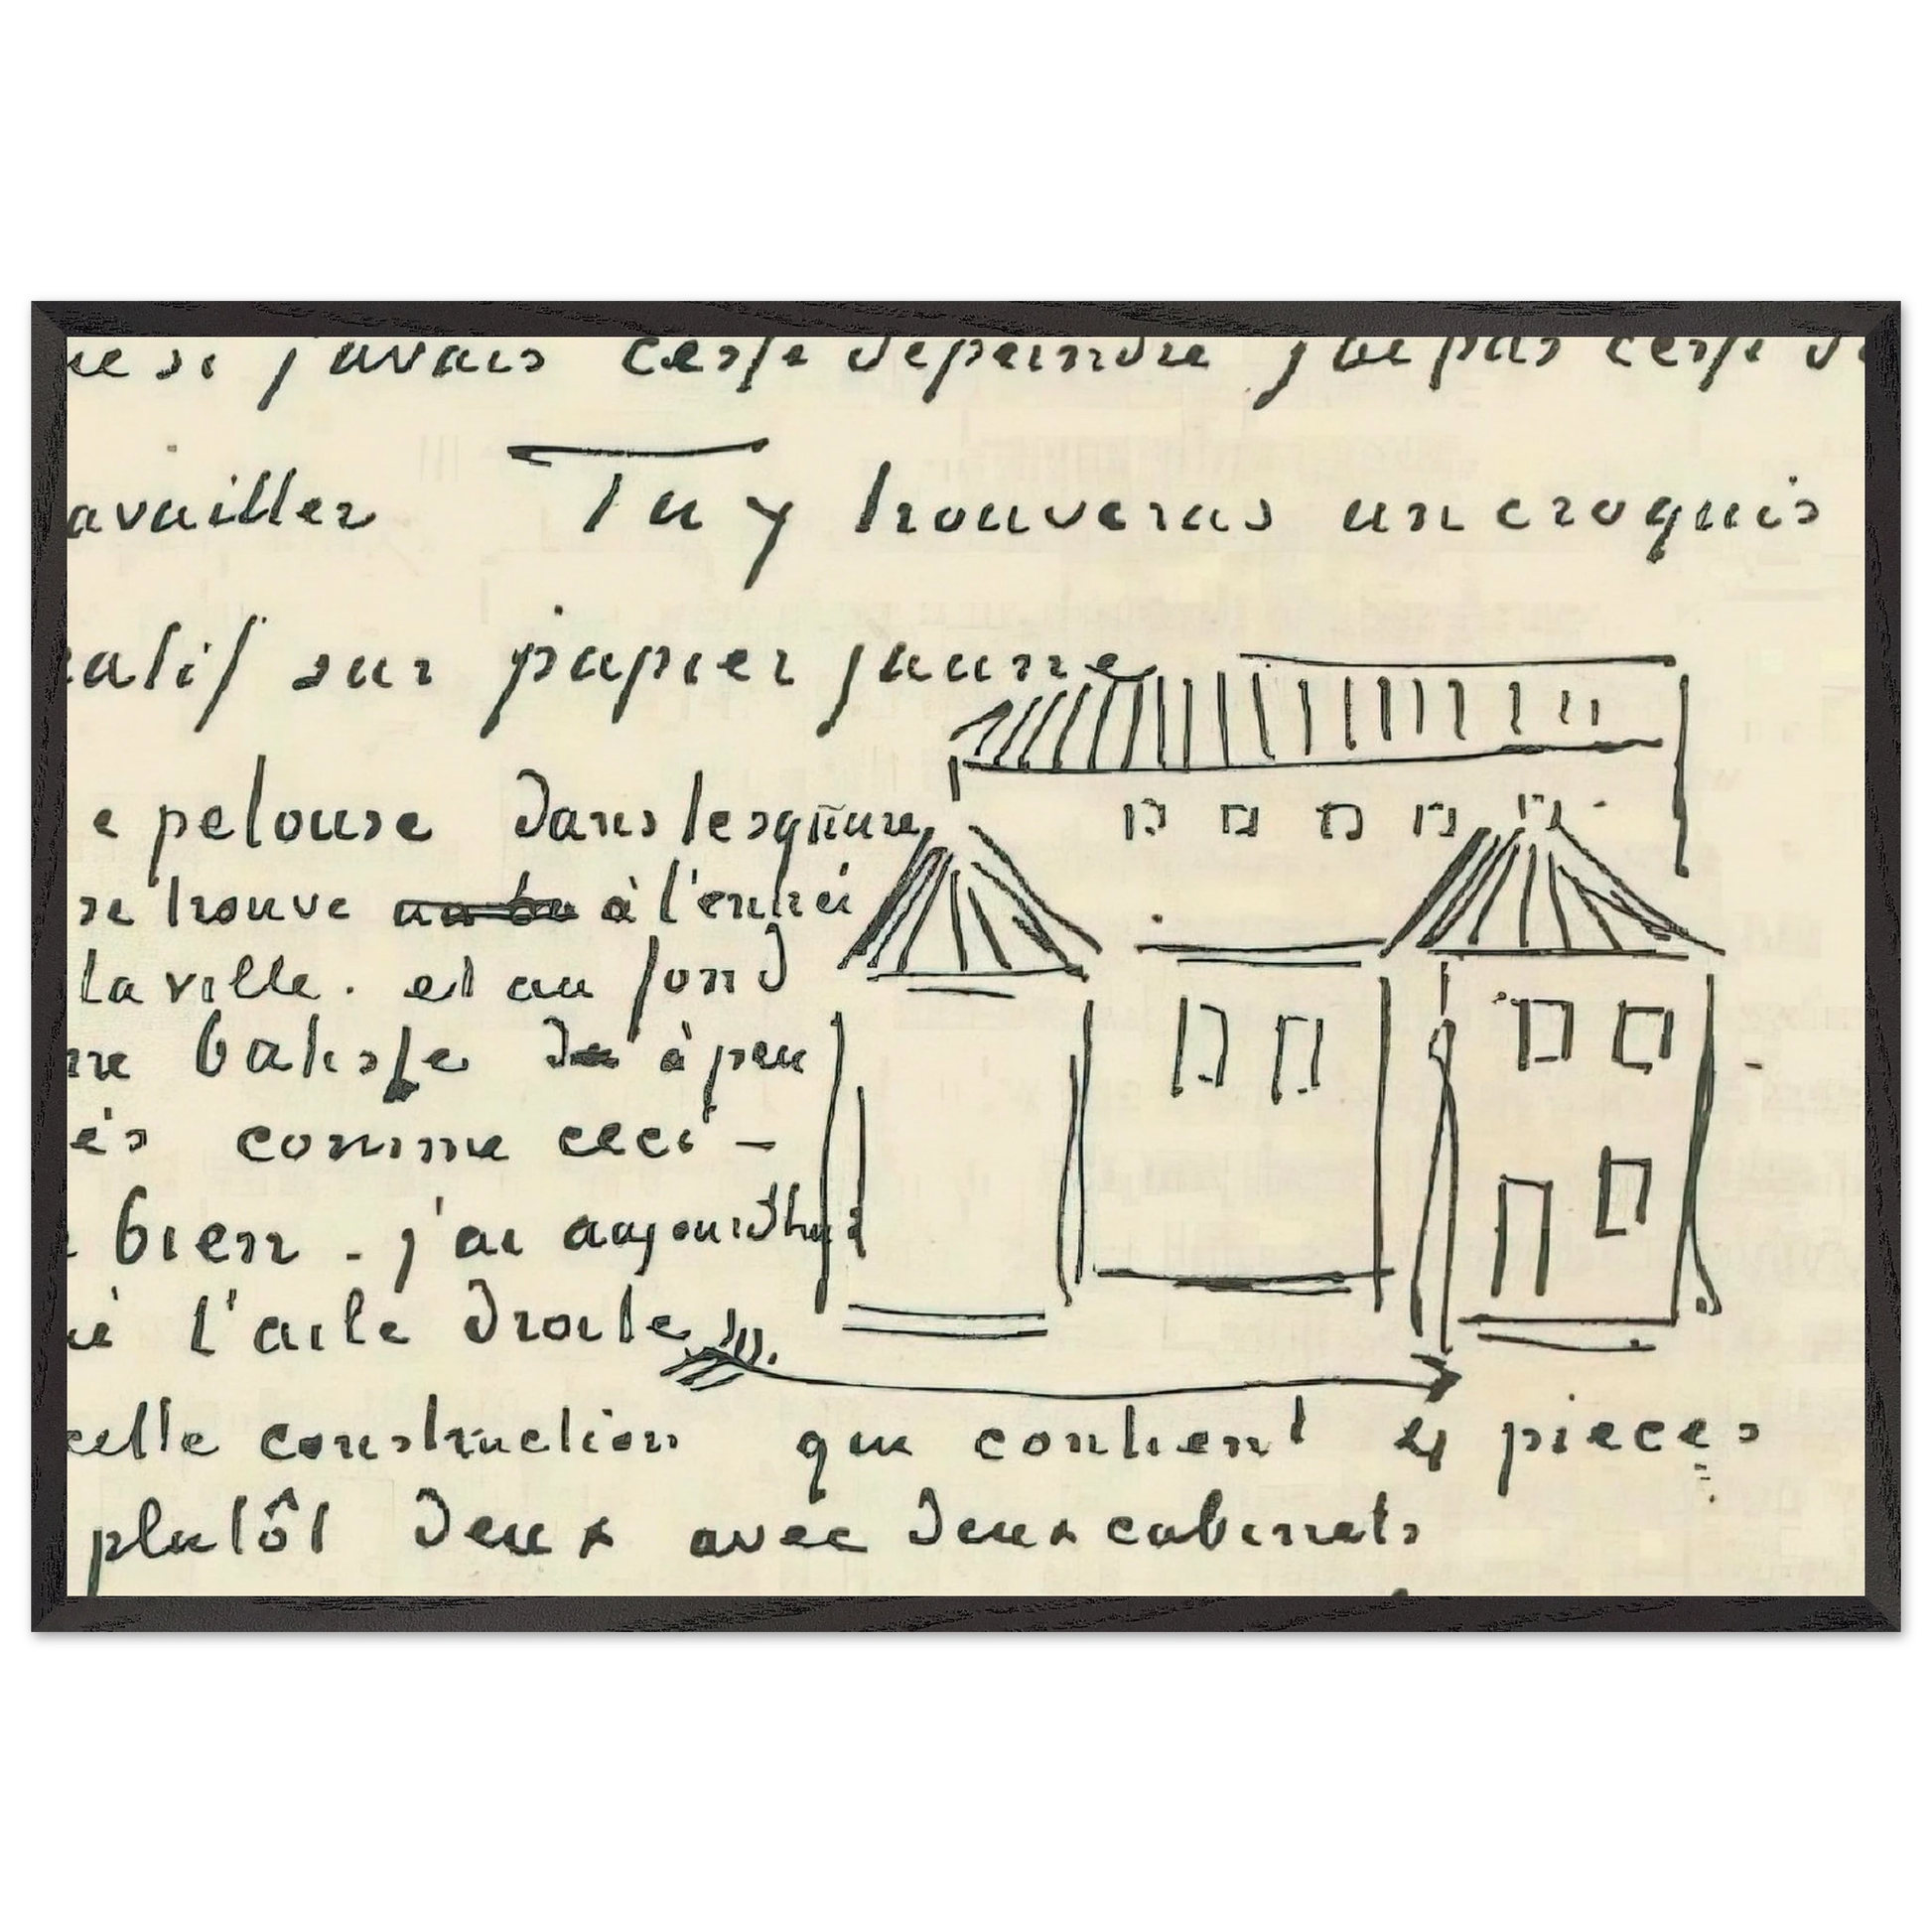 ue si j'avais cessé de peindre j'ai pas cessé de
availler Tu y trouveras un croquis
atif sur papier jaune
e pelouse dans le square
se trouve à l'entrée
la ville. et au fond
ne batisse de à peu
ès comme ceci -
bien - j'ai aujourdhui
é l'aile droite
cette construction qui contient 4 pieces
plutôt deux avec deux cabinets